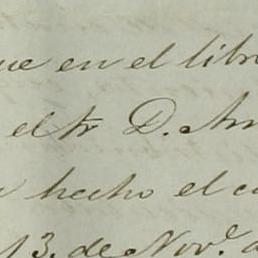 ue en el libr
el tr D. An
hecho el c
13. de Nov.e a